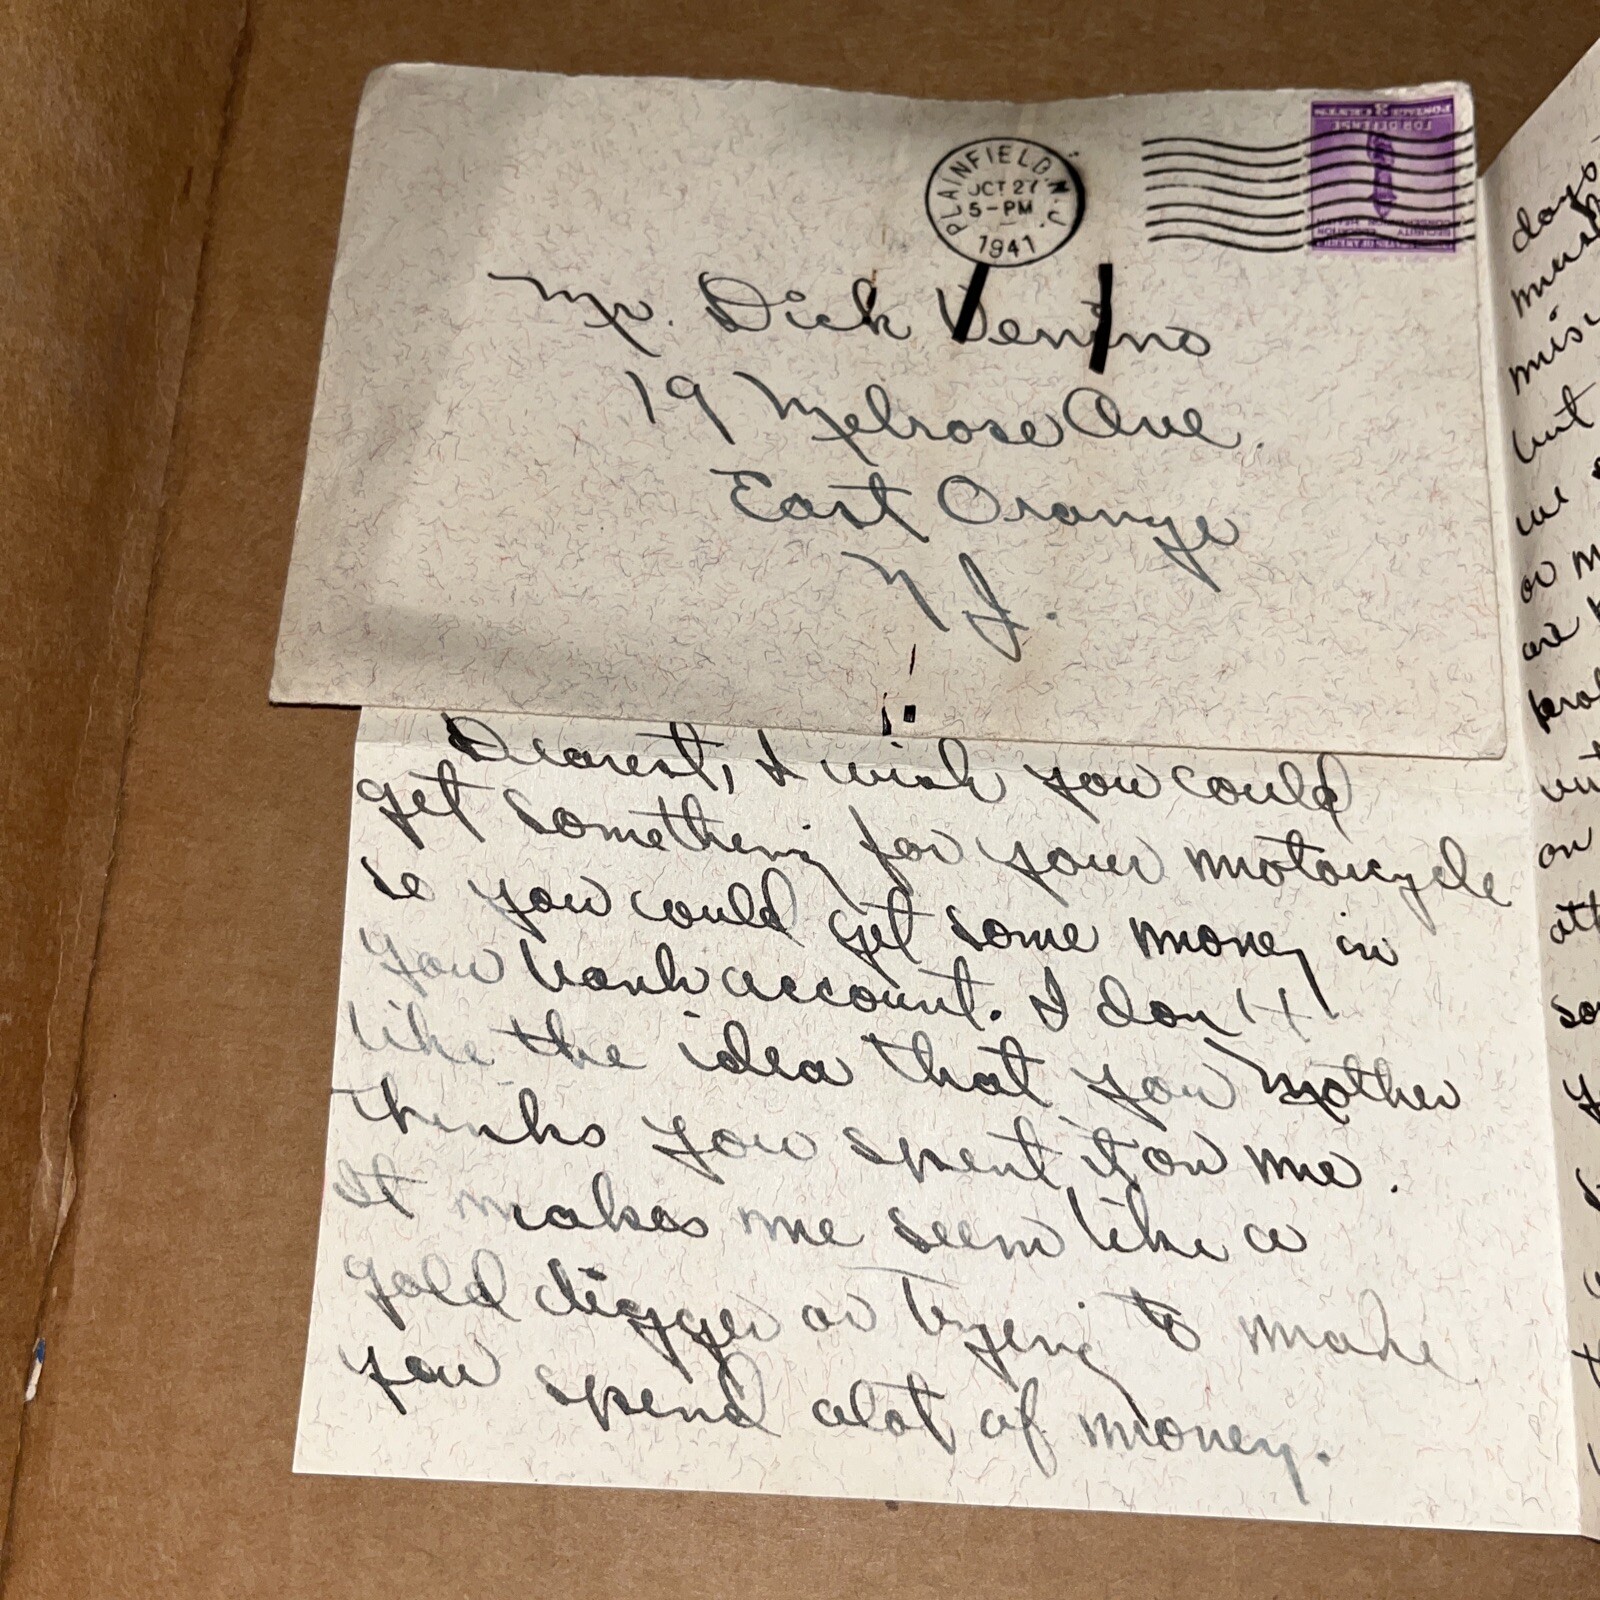 PLAINFIELD, N.J.
OCT 27
5-PM
1941
3 CENTS
POSTAGE
FOR DEFENSE
Mr. Dick Venino
19 Melrose Ave.
East Orange
N J.
Dearest, I wish you could
get something for your motorcycle
so you could get some money in
your bank account. I don't
like the idea that your mother
thinks you spent it on me.
It makes me seem like a
gold digger or trying to make
you spend alot of money.
days
must
but
we
or
are
on